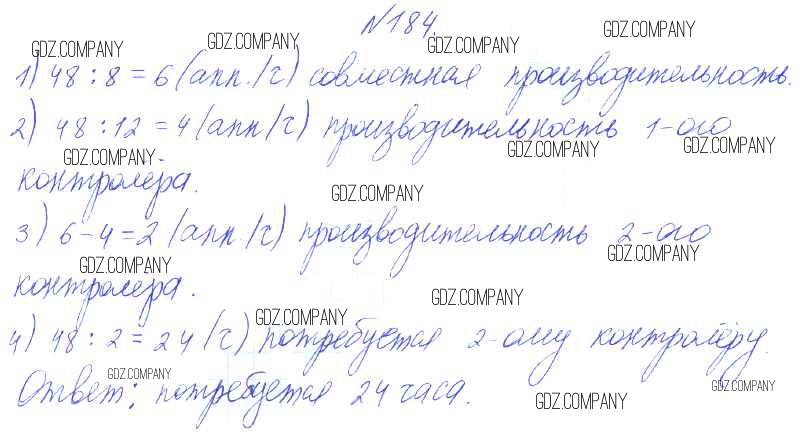 №184.
1) 48 : 8 = 6 (апп./ч) совместная производительность.
2) 48 : 12 = 4 (апп/ч) производительность 1-ого
контролёра.
3) 6 - 4 = 2 (апп/ч) производительность 2-ого
контролёра.
4) 48 : 2 = 24 (ч) потребуется 2-ому контролёру.
Ответ: потребуется 24 часа.
GDZ.COMPANY
GDZ.COMPANY
GDZ.COMPANY
GDZ.COMPANY
GDZ.COMPANY
GDZ.COMPANY
GDZ.COMPANY
GDZ.COMPANY
GDZ.COMPANY
GDZ.COMPANY
GDZ.COMPANY
GDZ.COMPANY
GDZ.COMPANY
GDZ.COMPANY